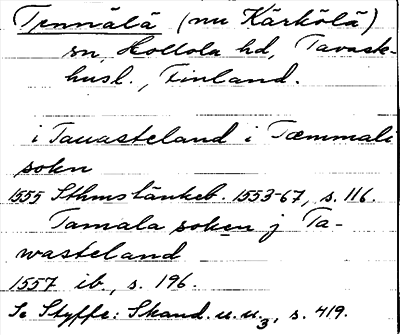 Tennälä (nu Kärkölä)
sn, Hollola hd, Tavast-
husl., Finland.
i Tauasteland i Tæmmali
sokn
1555 Sthms tänkeb. 1553-67, s. 116.
Tamala soken j Ta-
wasteland
1557 ib., s. 196.
Se Styffe: Skand. u. u.3, s. 419.